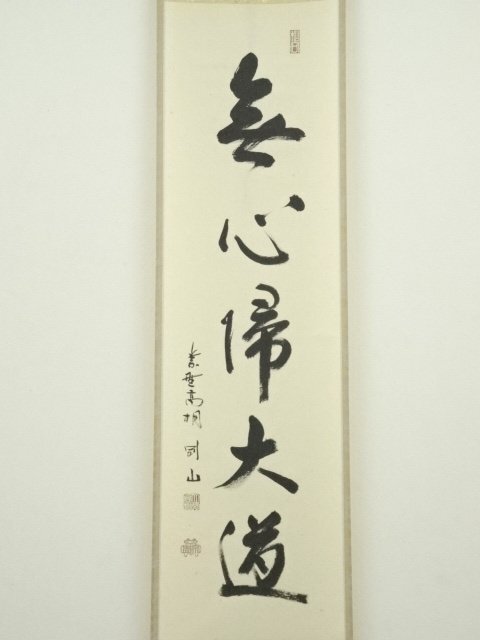 無心帰大道
紫野高桐 剛山